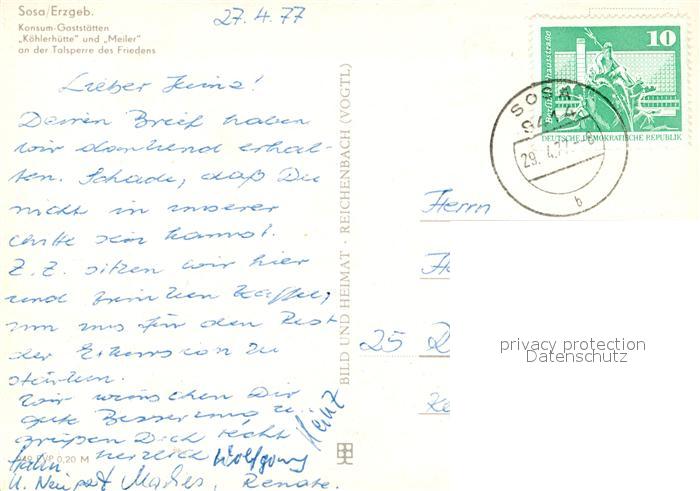 Sosa/Erzgeb.
Konsum-Gaststätten
„Köhlerhütte" und „Meiler"
an der Talsperre des Friedens
27.4.77
Lieber Heinz!
Deinen Brief haben
wir dankend erhal-
ten. Schade, daß Du
nicht in unserer
Mitte sein kannst.
Z.Z. sitzen wir hier
und trinken Kaffee,
um uns für den Rest
der Exkursion zu
stärken.
Wir wünschen Dir
gute Besserung u.
grüßen Dich recht
herzlich Wolfgang
Heinz
Renate.
EVP 0,20 M
BILD UND HEIMAT · REICHENBACH (VOGTL)
10
DEUTSCHE DEMOKRATISCHE REPUBLIK
SOSA
29. 4.77
b
Herrn
25
privacy protection
Datenschutz